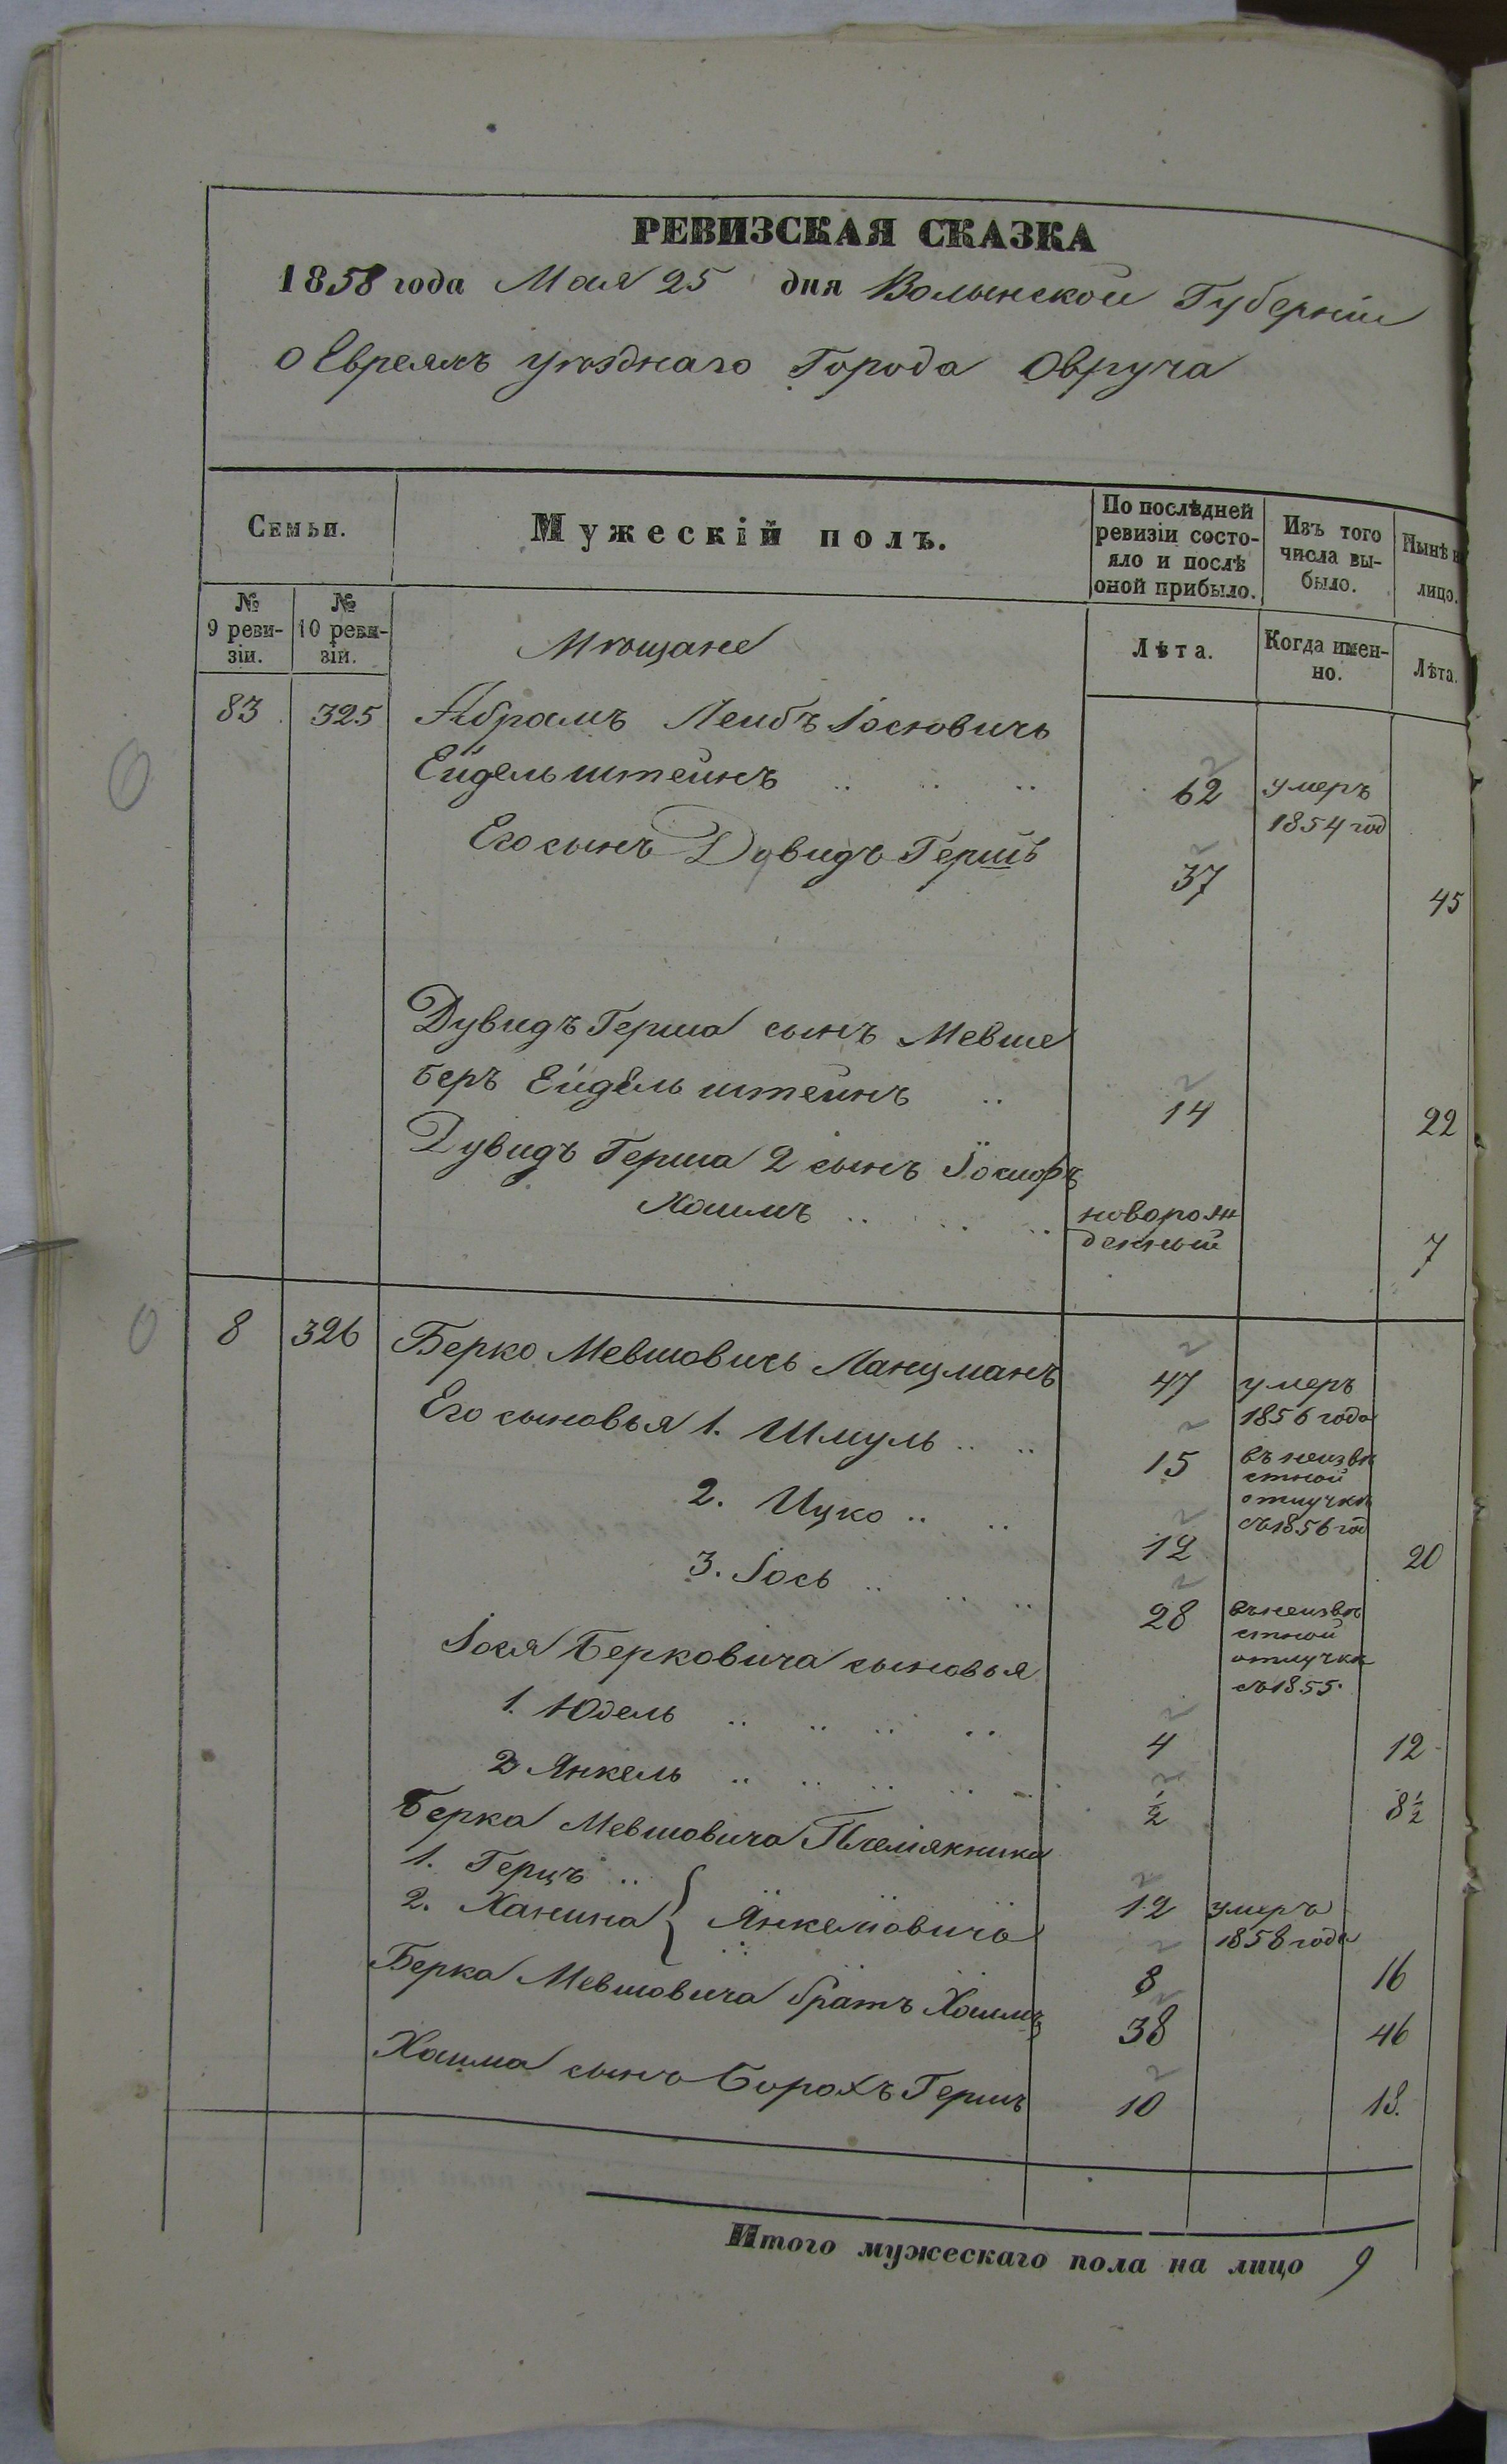 РЕВИЗСКАЯ СКАЗКА
1858 года Мая 25 дня Волынской Губерніи
о Евреяхъ уѣзднаго Города Овруча
Семьи.
Мужескій полъ.
По послѣдней ревизіи состо-
яло и послѣ
оной прибыло.
Изъ того
числа вы-
было.
Нынѣ н
лицо.
№
9 реви-
зіи.
№
10 реви-
зіи.
Мѣщане
Лѣта.
Когда имен-
но.
Лѣта.
83 325 Абрамъ Лейбъ Іосіовичъ
Ейдельштейнъ .. .. .. 62 умеръ
1854 год
Его сынъ Дувидъ Гершъ 37 45
Дувидъ Герша сынъ Мевше
Беръ Ейдельштейнъ .. 14 22
Дувидъ Герша 2 сынъ Іосифъ
Хаимъ .. .. .. новорож
денный 7
8 326 Берко Мевшовичъ Ланцманъ 47 умеръ
1856 года
Его сыновья 1. Шмуль .. .. 15 въ неизвѣ
стной
отлучкѣ
съ 1856 год
2. Ицко .. .. 12 20
3. Іось .. .. .. 28 въ неизвѣ
стной
отлучкѣ
съ 1855.
Іося Берковича сыновья
1. Юдель .. .. .. .. 4 12
2 Янкель .. .. .. .. .. ½ 8½
Берка Мевшовича Племянники
1. Герцъ .. 12 умеръ
1858 года
2. Ханина } Янкеліовичи 8 16
Берка Мевшовича братъ Хаимъ 38 46
Хаима сынъ Борохъ Гершъ 10 18.
Итого мужескаго пола на лицо 9